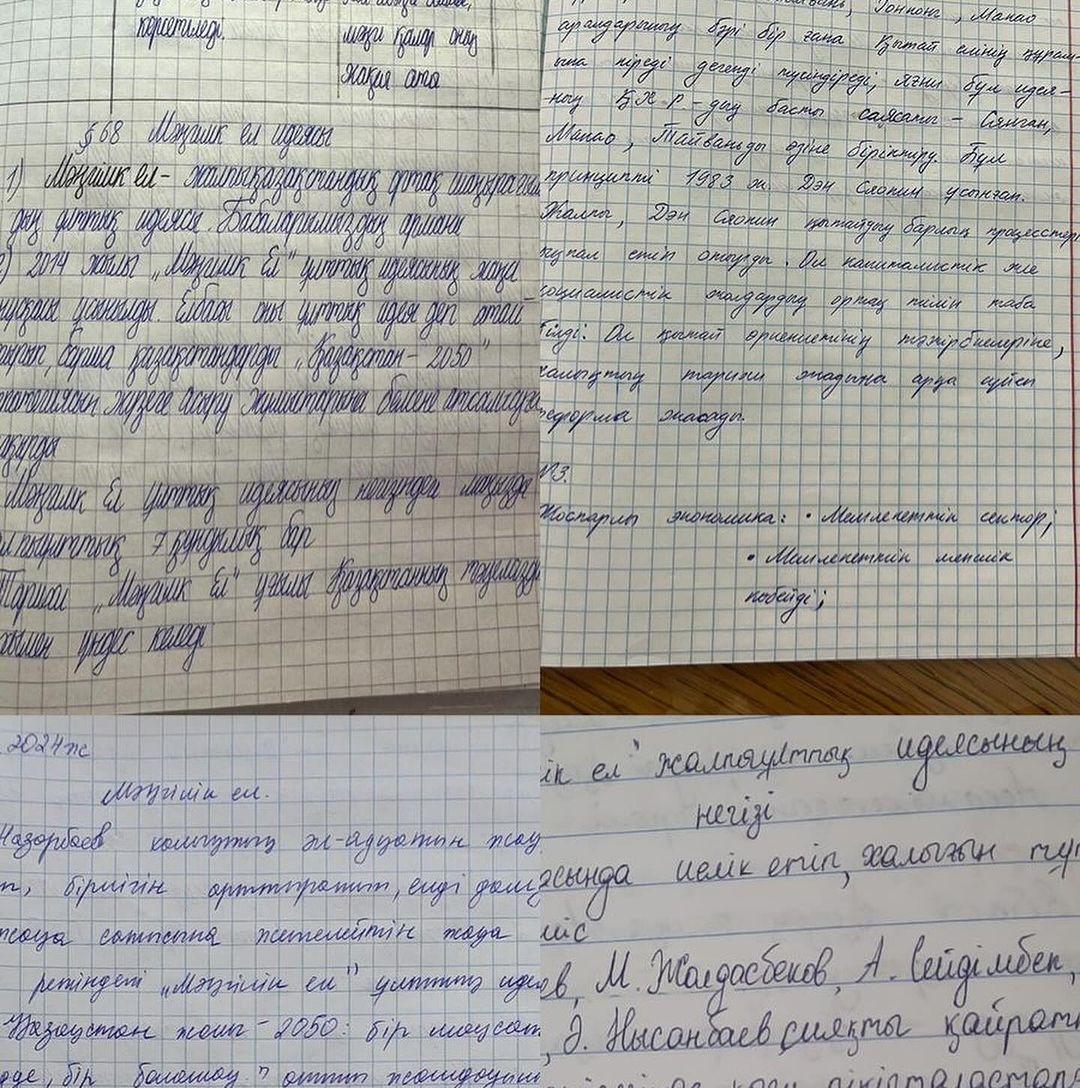 көрсетіледі.
мәңгі қалар оның
жақия ата
§ 68 Мәңгілік ел идеясы
1) Мәңгілік ел - жалпықазақстандық ортақ шаңырағы
дың ұлттық идеясы. Бабаларымыздың арманы
2) 2014 жылы „Мәңгілік Ел" ұлттық идеясының жаңа
нұсқасы ұсынылды. Елбасы оны ұлттық идея деп атай
отырып, барша қазақстандарды „Қазақстан - 2050"
стратегиясын жүзеге асыру жұмыстарына белсене атсалысуға
шақырды
Мәңгілік Ел ұлттық идеясының негізінде маңызды
жалпыұлттық 7 құндылық бар
Тарихи „Мәңгілік Ел" ұғымы Қазақстанның тәуелсізді
үндес келеді
Гонконг, Макао
аралдарының бәрі бір ғана Қытай елінің құрам-
ына кіреді дегенді түсіндіреді, яғни бұл идея-
ның ҚХР-дағы басты саясаты - Сянган,
Макао, Тайваньды өзіне біріктіру. Бұл
принципті 1983 ж. Дэн Сяопин ұсынған.
Жалпы, Дэн Сяопин қытайдағы барлық процесстері
ықпал етіп отырды. Ол капиталистік және
социалистік жолдардың ортақ тілін таба
білді. Ол қытай өркениетінің тәжірбиелеріне,
халықтың тарихи жадына арқа сүйеп
реформа жасады.
№3.
Жоспарлы экономика: • Мемлекеттік сектор;
• Мемлекеттік меншік
көбейді;
2024ж
Мәңгілік ел.
Назарбаев халықтың әл-ауқатын жақ
п, бірлігін арттыратын, енді даму
жаңа сатысына жетелейтін жаңа
ретіндегі „Мәңгілік ел" ұлттық идея
Қазақстан жолы - 2050: бір мақсат
дде, бір болашақ" атты жолдауын
ік ел" жалпыұлттық идеясының
негізі
асында иелік етіп, халығын тұр
міс
ев, М. Жолдасбеков, А. Сейдімбек,
, Ә. Нысанбаев сияқты қайратк